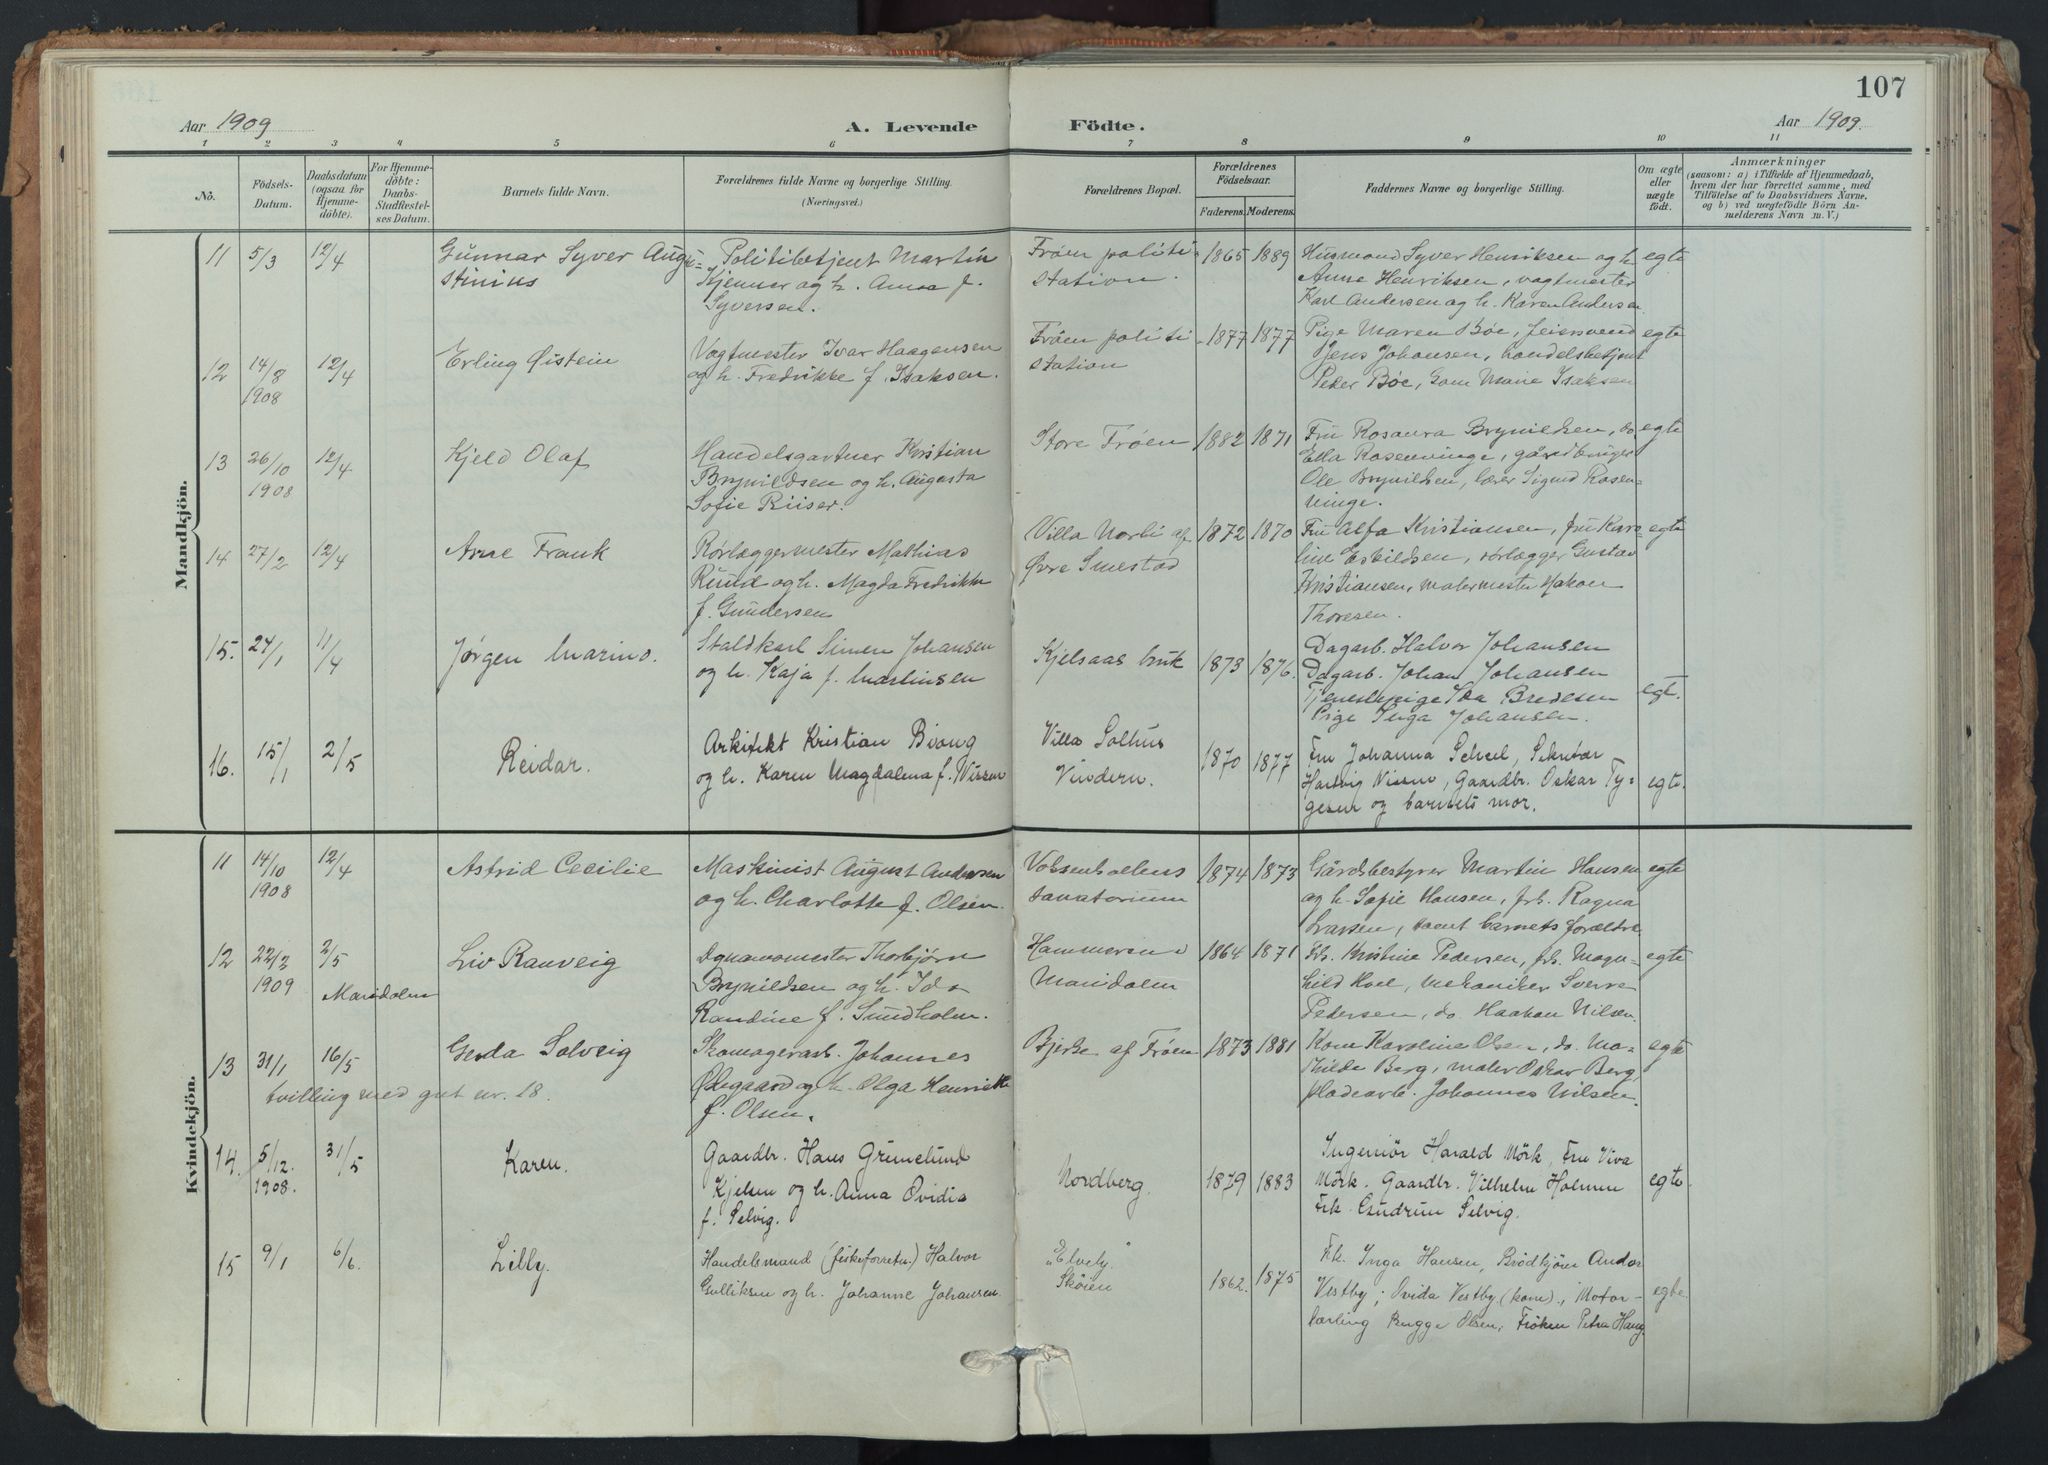 107
Aar 1909 A. Levende Fødte. Aar 1909.
1 2 3 4 5 6 7 8 9 10 11
No. Fødsels-Datum. Daabsdatum (ogsaa for Hjemme-døbte). For Hjemme-døbte: Daabs-Stadfæstel-ses Datum. Barnets fulde Navn. Forældrenes fulde Navne og borgerlige Stilling. (Næringsvei.) Forældrenes Bopæl. Forældrenes Fødselsaar. Faderens. Moderens. Faddernes Navne og borgerlige Stilling. Om ægte eller uægte født. Anmærkninger (saasom: a) i Tilfælde af Hjemmedaab, hvem der har forrettet samme, med Tilføielse af to Daabsvidners Navne, og b) ved uægtefødte Børn An-melderens Navn m. V.)
Mandkjön.
11 5/3 12/4 Gunnar Syver Augu= Politibetjent Martin Frøen politi- 1865 1889 Husmand Syver Henriksen og h. egte
stinius Kjenner og h. Anna f. station. Anne Henriksen, vagtmester
Syversen. Karl Andersen og h. Karen Andersen
12 14/8 1908 12/4 Erling Øistein Vagtmester Ivar Haagensen Frøen politi- 1877 1877 Pige Maren Bøe, feiersvend egte
og h. Fredrikke f. Isaksen. station Jens Johansen, handelsbetjent
Peder Bøe, Gom Marie Isaksen
13 26/10 1908 12/4 Kjeld Olaf Handelsgartner Kristian Store Frøen 1882 1871 Fru Rosaura Brynildsen, do. egte
Brynildsen og h. Augusta Ella Rosenvinge, gårdbruger
Sofie Riiser. Ole Brynildsen, lærer Sigurd Rosen-
vinge.
14 27/2 12/4 Arne Frank Rørlæggermester Mathias Villa Norli af 1872 1870 Fru Alfa Kristiansen, fru Karo- egte
Ruud og h. Magda Fredrikke Øvre Smestad line Eskildsen, rørlægger Gustav
f. Gundersen Kristiansen, malermester Hakon
Thoresen.
15. 24/1 11/4 Jørgen Marino. Staldkarl Simen Johansen Kjelsaas bruk 1873 1876. Dagarb. Halvor Johansen
og h. Kaja f. Martinsen Dagarb. Johan Johansen
Tjenestepige Bredesen egt.
Pige Inga Johansen.
16. 15/1 2/5 Reidar. Arkitekt Kristian Biong Villa Solhus 1870 1877 Fru Johanna Scheel, Sekretær
og h. Karen Magdalena f. Nissen Vindern. Hartvig Nissen, Gaardbr. Oskar Ty= egte.
gesen og barnets mor.
Kvindekjön.
11 14/10 1908 12/4 Astrid Cecilie Maskinist August Andersen Voksenkollens 1874 1873 Gårdsbestyrer Martin Hansen egte
og h. Charlotte f. Olsen. sanatorium og h. Sofie Hansen, frk. Ragna
Larsen, samt barnets forældre
12 22/2 1909 2/5 Maridalen Liv Ranveig Dynamomester Thorbjørn Hammeren i 1864 1871 Frk. Kristine Pedersen, frk. Magn- egte
Brynildsen og h. Ida Maridalen hild Hoel, mekaniker Sverre
Randine f. Sundholm. Pedersen, do. Haakon Nilsen.
13 31/1 16/5 Gerda Solveig Skomagerarb. Johannes Bjerke af Frøen 1873 1881 Kone Karoline Olsen, do. Ma- egte
tvilling med gut nr. 18. Ødegaard og h. Olga Henriette thilde Berg, maler Oskar Berg,
f. Olsen. pladearb. Johannes Nilsen.
14. 5/12. 1908. 31/5 Karen. Gaardbr. Hans Grimelund Nordberg. 1879 1883 Ingeniör Harald Mörk, Fru Viva
Kjelsen og h. Anna Ovidia Mörk. Gaardbr. Vilhelm Holmen egte.
f. Selvig. Frk. Gudrun Selvig.
15 9/1 6/6. Lilly. Handelsmand (fiskeforretn.) Halvor "Elvely" Frk. Inga Hansen, Brödkjörer Andor
Gulliksen og h. Johanne Johansen. Skøien 1862. 1875 Vestby; Ovida Vestby (kone), Motor- egte.
lærling Olsen, Frøken Petra Haug.